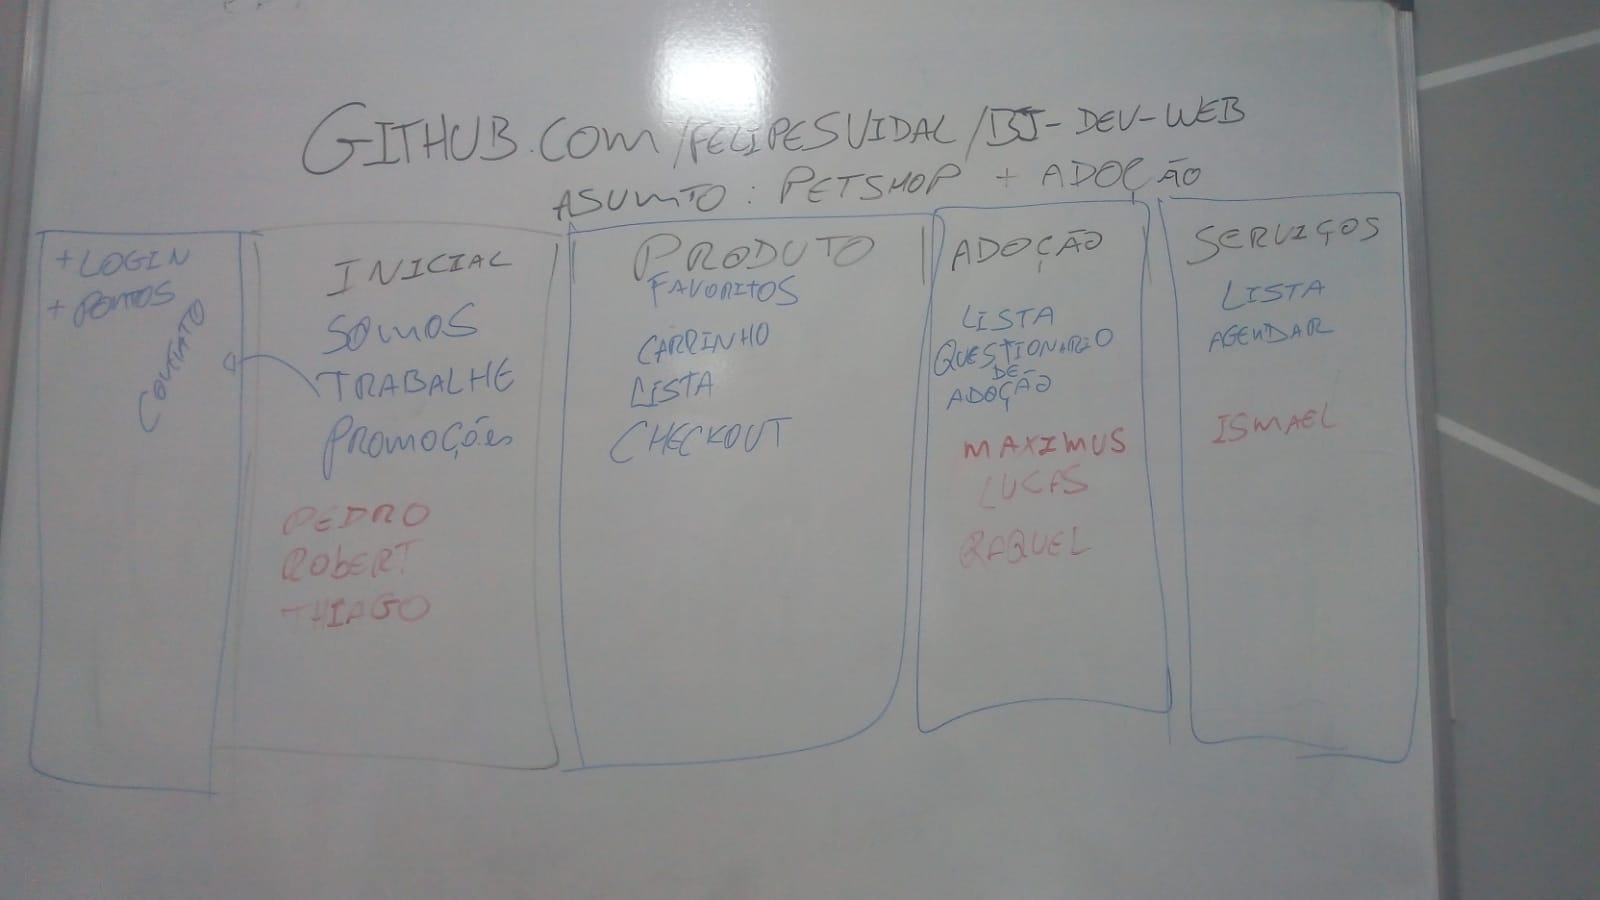 GITHUB.COM/FELIPESVIDAL/BJ-DEV-WEB
ASUNTO: PETSHOP + ADOÇÃO
+ LOGIN
+ PONTOS
CONTRATO
INICIAL
SOMOS
TRABALHE
PROMOÇÕES
PEDRO
ROBERT
THIAGO
PRODUTO
FAVORITOS
CARRINHO
LISTA
CHECKOUT
ADOÇÃO
LISTA
QUESTIONARIO
DE
ADOÇÃO
MAXIMUS
LUCAS
RAQUEL
SERVIÇOS
LISTA
AGENDAR
ISMAEL